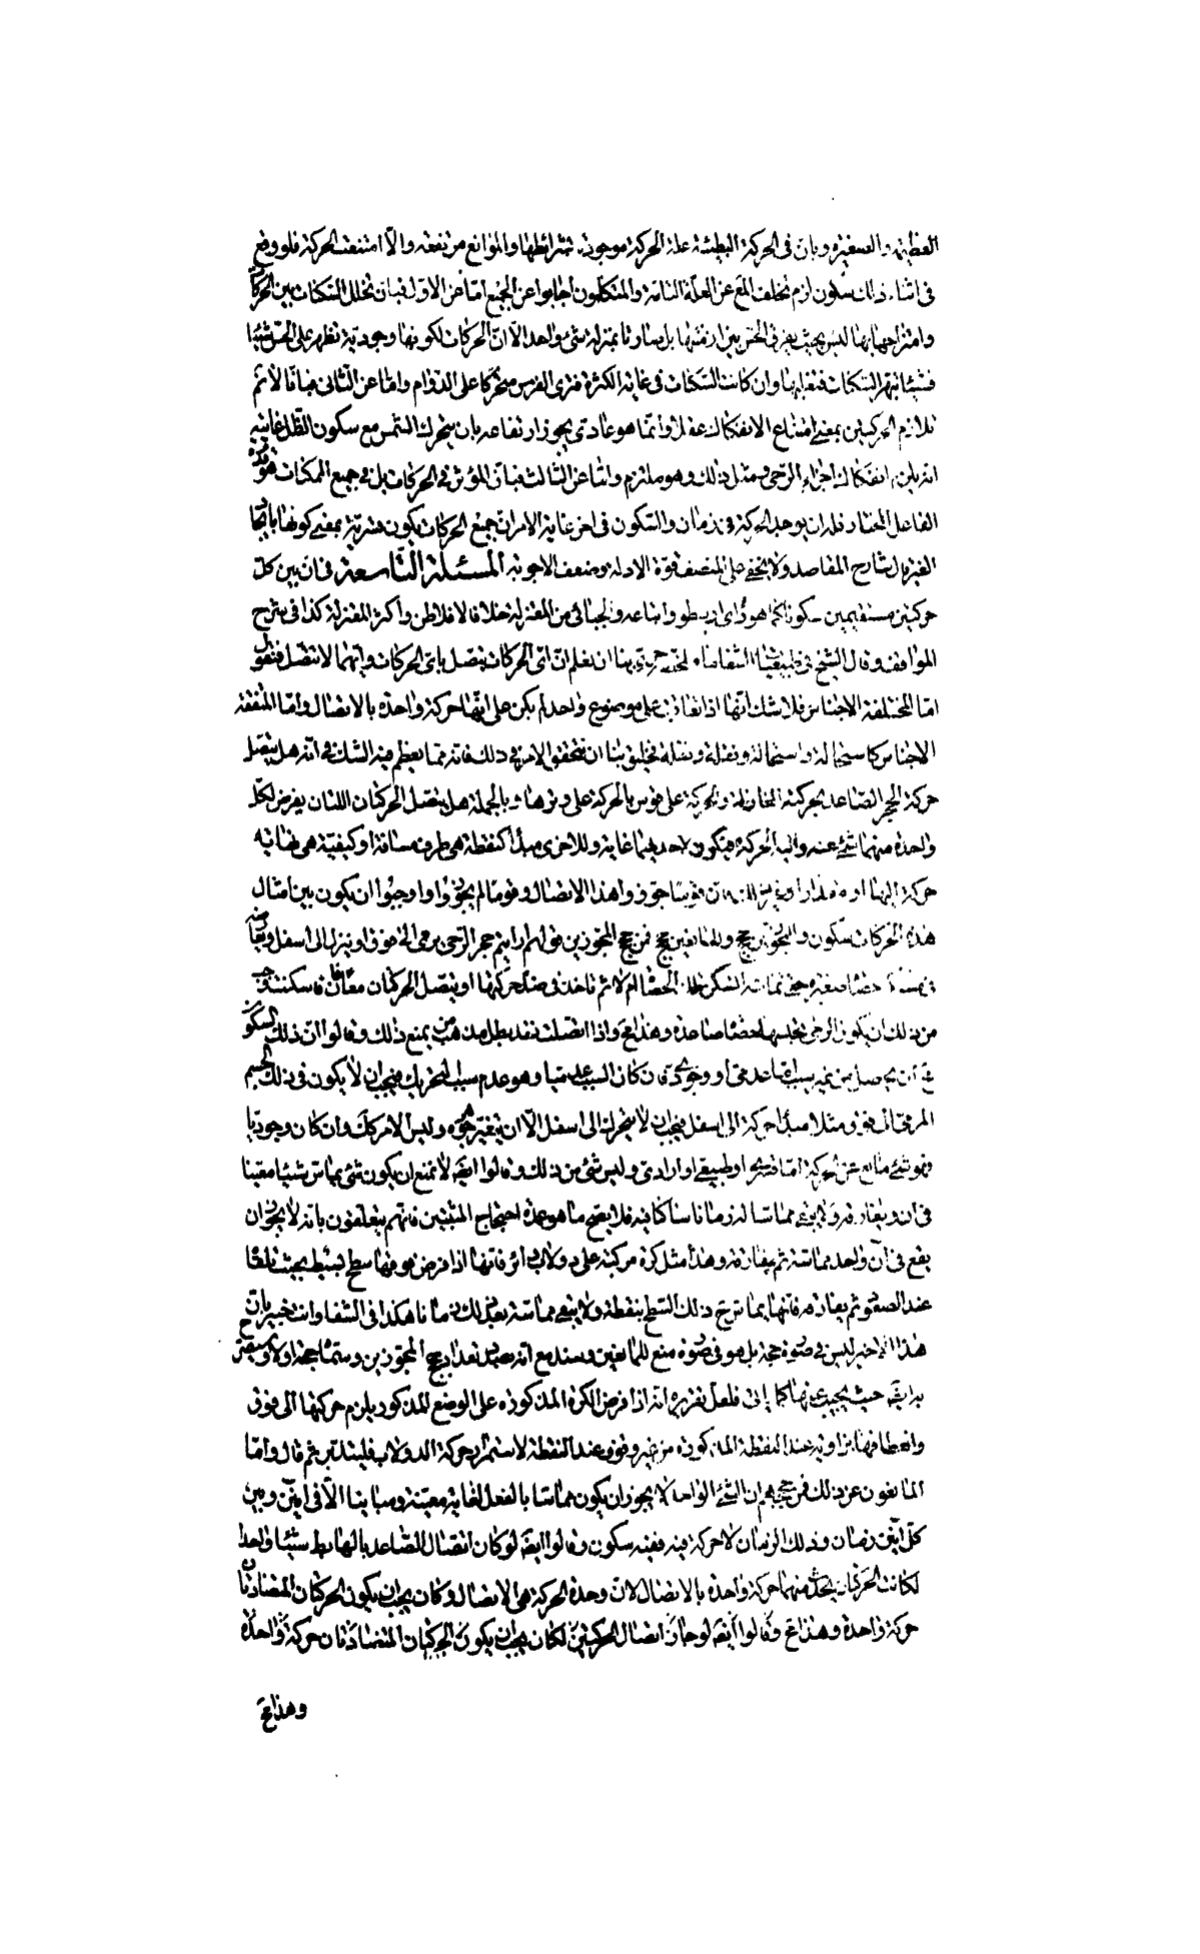 العظيمة والصغيرة وبان فى الحركة البطيئة علة الحركة موجودة بشرائطها والموانع مرتفعة والا امتنعت الحركة فلو وقع
فى اثناء ذلك سكون لزم تخلف المع عن العلة التامة والمتكلمون اجابوا عن الجميع اما عن الاول فبان تخلل السكنات بين الحركات
وامتزاجها بها ليس بحيث يفرق الحس بين ازمنتها بل صارتا بمنزلة شئ واحد الا ان الحركات لكونها وجودية تظهر على الحس شيئا
فشيئا السكنات وان كانت السكنات فى غاية الكثرة فترى الفرس متحركا على الدوام واما عن الثانى فبانا لا نم
تلازم الحركتين بمعنى امتناع الانفكاك عقلا وانما هو عادى يجوز ارتفاعه بان يتحرك الشمس مع سكون الظل غايته
انه يلزم انفكاك اجزاء الرحى ومثل ذلك وهو ملتزم واما عن الثالث فبان المؤثر فى الحركات بل فى جميع الممكنات هو قدرة
الفاعل المختار فله ان يوجد الحركة فى زمان والسكون فى اخر غاية الامر ان جميع الحركات يكون قسرية بمعنى كونها بايجاد
الغير قال شارح المقاصد ولا يخفى على المنصف قوة الادلة وضعف الاجوبة المسئلة التاسعة فى ان بين كل
حركتين مستقيمتين سكونا كما هو رأى ارسطو واتباعه والجبائى من المعتزلة خلافا لافلاطن واكثر المعتزلة كذا فى شرح
المواقف وقال الشيخ فى طبيعيات الشفا بنا ان نعلم ان اى الحركات يتصل باى الحركات وايتهما لا تتصل فنقول
اما المختلفة الاجناس فلا شك انها اذا على موضوع واحد لم يكن على انها حركة واحدة بالاتصال واما المتفقة
الاجناس كاستحالة واستحالة ونقلة ونقلة فخليق بنا ان نتحقق الامر فى ذلك فانه مما يعظم فيه الشك فى انه هل يتصل
حركة الحجر الصاعد بحركته الهابطة والحركة على قوس بالحركة على وترها وبالجملة هل يتصل الحركتان اللتان يعرض لكل
واحدة منهما شئ عنه واليه الحركة فيكون لاحديهما غاية وللاخرى مبدأ كنقطة هى طرف مسافة او كيفية هى نهاية
حركة اليها او مقدارا او غير ذلك فان قوما جوزوا هذا الاتصال وقوما لم يجوزوا واوجبوا ان يكون بين امثال
هذه الحركات سكون وللمجوزين حجج وللمانعين حجج فمن حجج المجوزين قولهم ارايتم حجر الرحى يرمى الى فوق او ينزل الى اسفل
حصاة صغيرة حتى تماسه لا ثم تاخذ فى ضد حركتها او يتصل الحركتان معا فان سكنت وجب
من ذلك ان يكون الرحى تحبسها الحصاة صاعدة وهذا مح واذا اتصلت فقد بطل مذهب من يمنع ذلك وقالوا ان ذلك السكون
مح ان يحصل من غير سبب عدمى او وجودى فان كان السبب عدميا وهو عدم سبب التحريك فيجب ان لا يكون فى ذلك الجسم
المرمى الى فوق مثلا مبدأ حركة الى اسفل فيجب ان لا يتحرك الى اسفل الا ان يتغير جوهره وليس الامر كك وان كان وجوديا
فهو شئ مانع عن الحركة اما قسرى او طبيعى او ارادى وليس شئ من ذلك وقالوا ايضه لا نمنع ان يكون شئ يماس شيئا معينا
فى ان ويفارقه ولا يبقى مماسا له زمانا ساكنا فيه فلا يصح ما هو عمدة احتجاج المثبتين فانهم يتعلقون بانه لا يجوز ان
يقع فى آن واحد مماسة ثم مفارقة وهذا مثل كرة مركبة على دولاب دائر فانها اذا فرض فوقها سطح بسيط بحيث تلقاها
عند الصعود ثم يفارقه فانها يماس ح ذلك السطح بنقطة ولا يبقى مماسة بعد ذلك زمانا هكذا فى الشفا وانت خبير بان
هذا الاخير ليس فى صورة حجة بل هو فى صورة منع للمانعين وسند مع انه بصدد تعداد حجج المجوزين وستماه حجة اولا
به ايضه حيث يجيب عنها كما ياتى فلعل تقريره انه اذا فرض الكرة المذكورة على الوضع المذكور يلزم حركتها الى فوق
وانعطافها بزاوية عند النقطة المذكورة من غير وقوف عند النقطة لاستمرار حركة الدولاب فليتدبر ثم قال واما
المانعون عن ذلك فمن حججهم ان الشئ الواحد لا يجوز ان يكون مماسا بالفعل لغاية معينة ومباينا الا فى انين وبين
كل آنين زمان وذلك الزمان لا حركة فيه ففيه سكون وقالوا ايضه لو كان اتصال الصاعد بالهابط شيئا واحدا
لكانت الحركتان يحدث منهما حركة واحدة بالاتصال لان وحدة الحركة هى الاتصال وكان يجب ان يكون الحركتان المتضادتان
حركة واحدة وهذا مح وقالوا ايضه لو جاز اتصال الحركتين لكان يجب ان يكون الحركتان المتضادتان حركة واحدة
وهذا مح